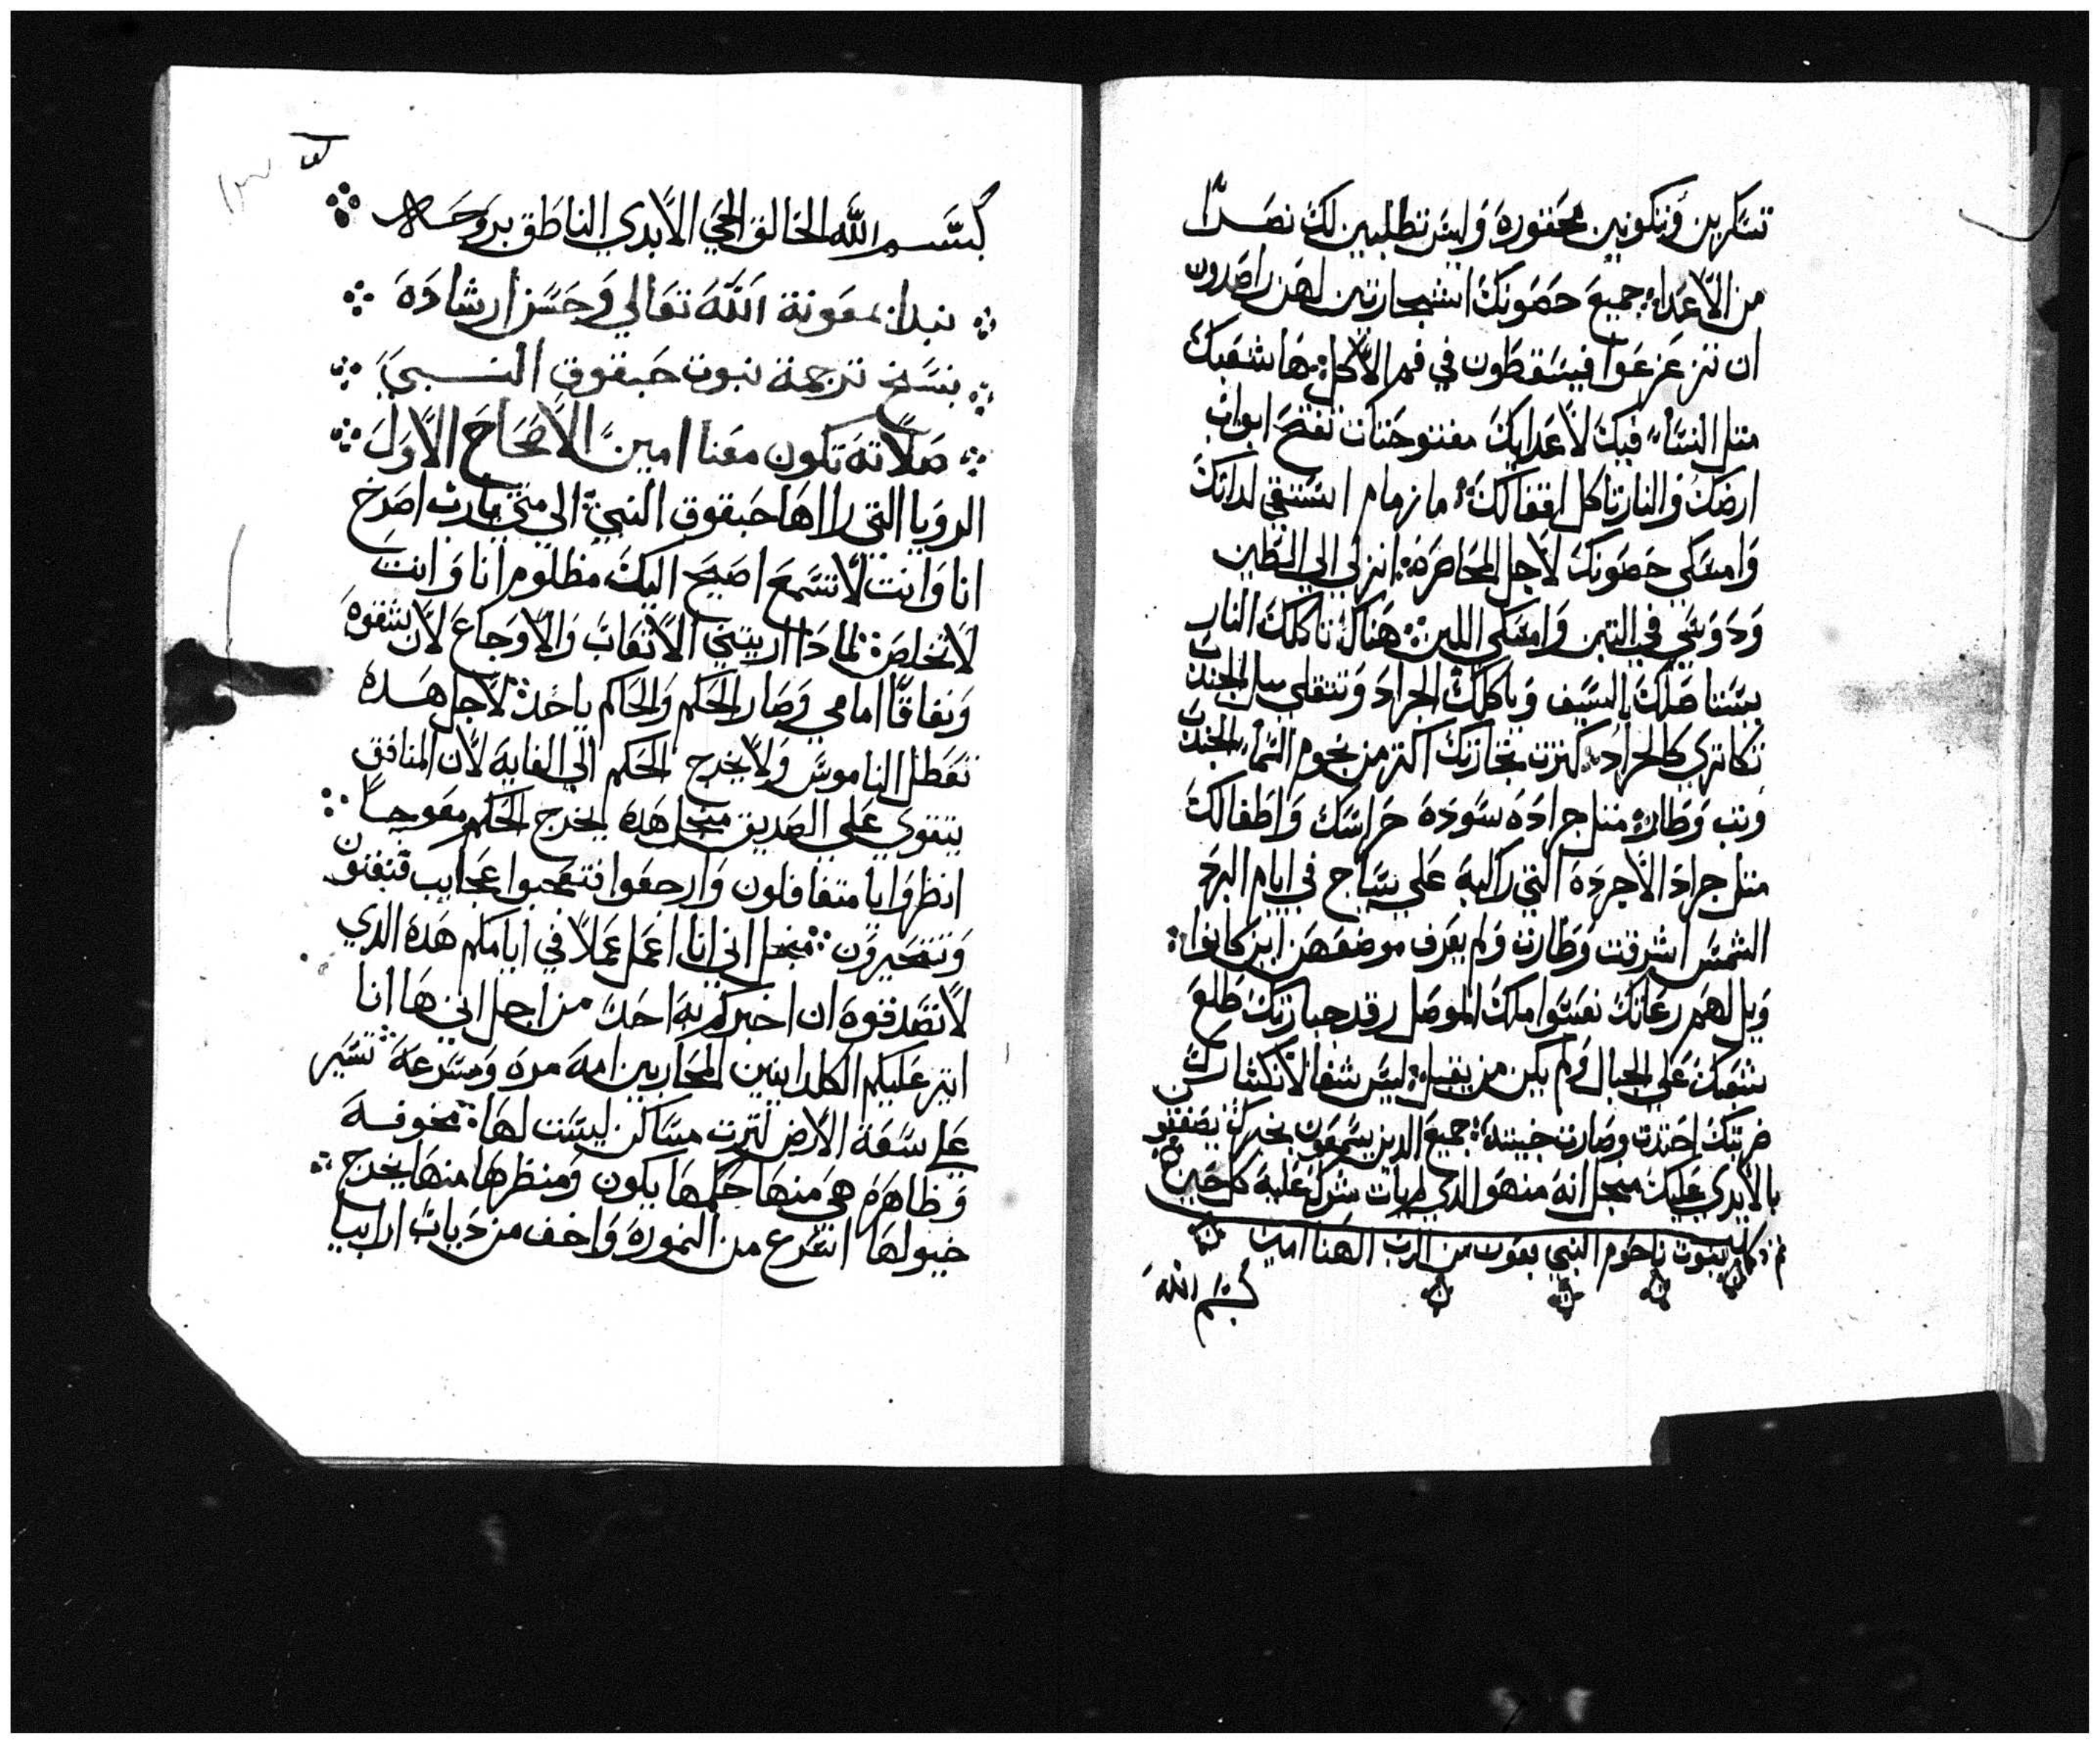 تسكرين وتكونين محقورة وانتي تطلبين لك نصرا
من الاعدا جميع حصونك اشجار تين لهن راصدون
ان تزعزعوا فيسقطون في فم الاكل ها شعبك
متل النسا فيك لاعدايك مفتوحتات تفتح ابواب
ارضك والنار تاكل اقفالك ما زمام استقي لداتك
وامسكي حصونك لاجل المحاصرة انزلي الي الطين
ودوسي في التبن وامسكي اللبن هناك تاكلك النار
يستاصلك السيف وياكلك الجراد وتتقلي متل الجندب
تكاتري كالجراد كترت تجارتك اكتر من نجوم السما الجندب
وتب وطار متل جراده سوده حراسك واطفالك
متل جراد الاجرده التي راكبه علي سياج في ايام البرد
الشمس اشرقت وطارت ولم يعرف موضعهن اين كانوا
ويل لهم رعاتك نعسوا ملك الموصل رقد جبارتك طلع
شعبك علي الجبال ولم يكن من يقبل ليس شفا لانكسارك
ضربتك احتدت وصارت خبيته جميع الدين يسمعون بخبرك يصفقون
بالايدي عليك منجل انه من هو الدي لم يات شرك عليه كل حين
تم وكمل نبوت ناحوم النبي بعون من الرب الهنا امين
بسم الله
بسم الله الخالق الحي الابدي الناطق بروحه
نبدا بمعونة الله تعالي وحسن ارشاده
بنسخ ترجمة نبوت حبقوق النبي
صلاته تكون معنا امين الاصحاح الاول
الرويا التي راها حبقوق النبي الي متي يارب اصرخ
انا وانت لا تسمع اصيح اليك مظلوم انا وانت
لا تخلص لمادا اريتني الاتعاب والاوجاع لان شقوه
ونفاقا امامي وصار الحكم والحاكم ياخد لاجل هده
تعطل الناموس ولا يخرج الحكم الي الغايه لان المنافق
يتقوي علي الصديق منجل هده يخرج الحكم معوجا
انظروا يا متغافلون وارجعوا فتعجبوا عجايب فتفتنون
وتتحيرون منجل اني انا اعمل عملا في ايامكم هده الدي
لا تصدقوه ان اخبركم به احد من اجل اني ها انا
اتير عليكم الكلدانيين المحاربين امه مره ومسرعة تسير
علي سعة الارض لترت مساكن ليست لها مخوفه
وظاهره هي منها حكمها يكون ومنظرها منها يخرج
خيولها اسرع من النموره واخف من دياب ارابيا